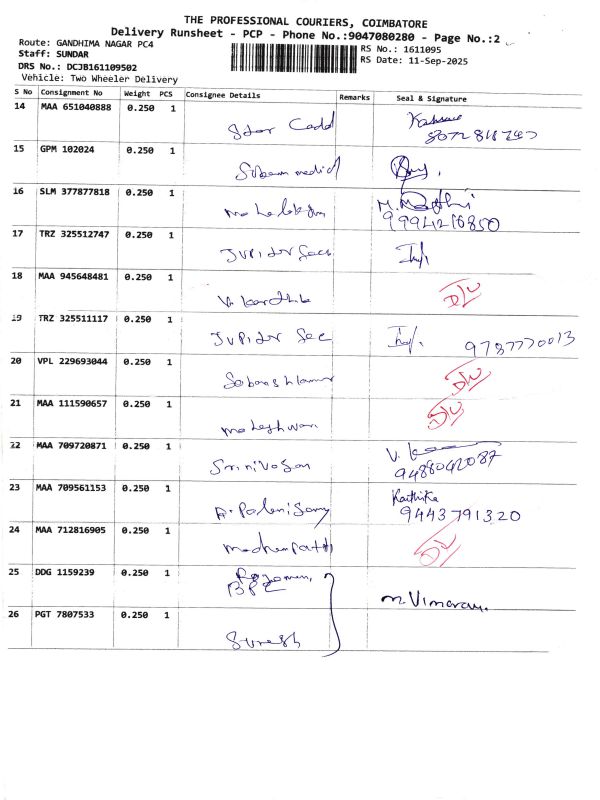 THE PROFESSIONAL COURIERS, COIMBATORE
Delivery Runsheet - PCP - Phone No.:9047080280 - Page No.:2
Route: GANDHIMA NAGAR PC4
RS No.: 1611095
Staff: SUNDAR
RS Date: 11-Sep-2025
DRS No.: DCJB161109502
Vehicle: Two Wheeler Delivery
S No Consignment No Weight PCS Consignee Details Remarks Seal & Signature
14 MAA 651040888 0.250 1
Star Cadd
15 GPM 102024 0.250 1
16 SLM 377877818 0.250 1
17 TRZ 325512747 0.250 1
Jupitor Secs
18 MAA 945648481 0.250 1
V. Karthik D/L
19 TRZ 325511117 0.250 1
Jupitor Sec 9787770013
20 VPL 229693044 0.250 1
D/L
21 MAA 111590657 0.250 1
Maheshwari D/L
22 MAA 709720871 0.250 1
Srinivasan 9488042087
23 MAA 709561153 0.250 1 Karthika
A. Palanisamy 9443791320
24 MAA 712816905 0.250 1
D/L
25 DDG 1159239 0.250 1
26 PGT 7807533 0.250 1
Suresh